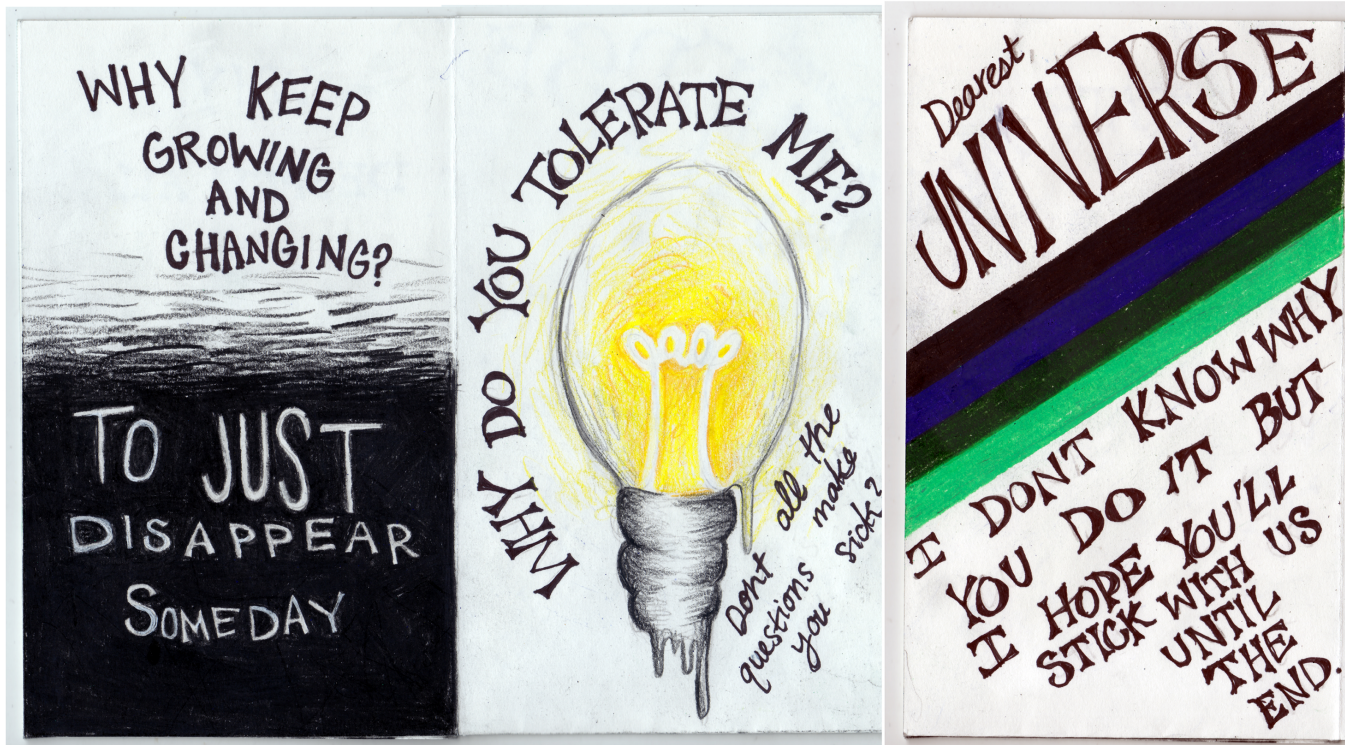 WHY KEEP
GROWING
AND
CHANGING?
TO JUST
DISAPPEAR
SOMEDAY
WHY DO YOU TOLERATE ME?
Dont all the
questions make
you sick?
Dearest
UNIVERSE
I DONT KNOW WHY
YOU DO IT BUT
I HOPE YOU'LL
STICK WITH US
UNTIL
THE
END.